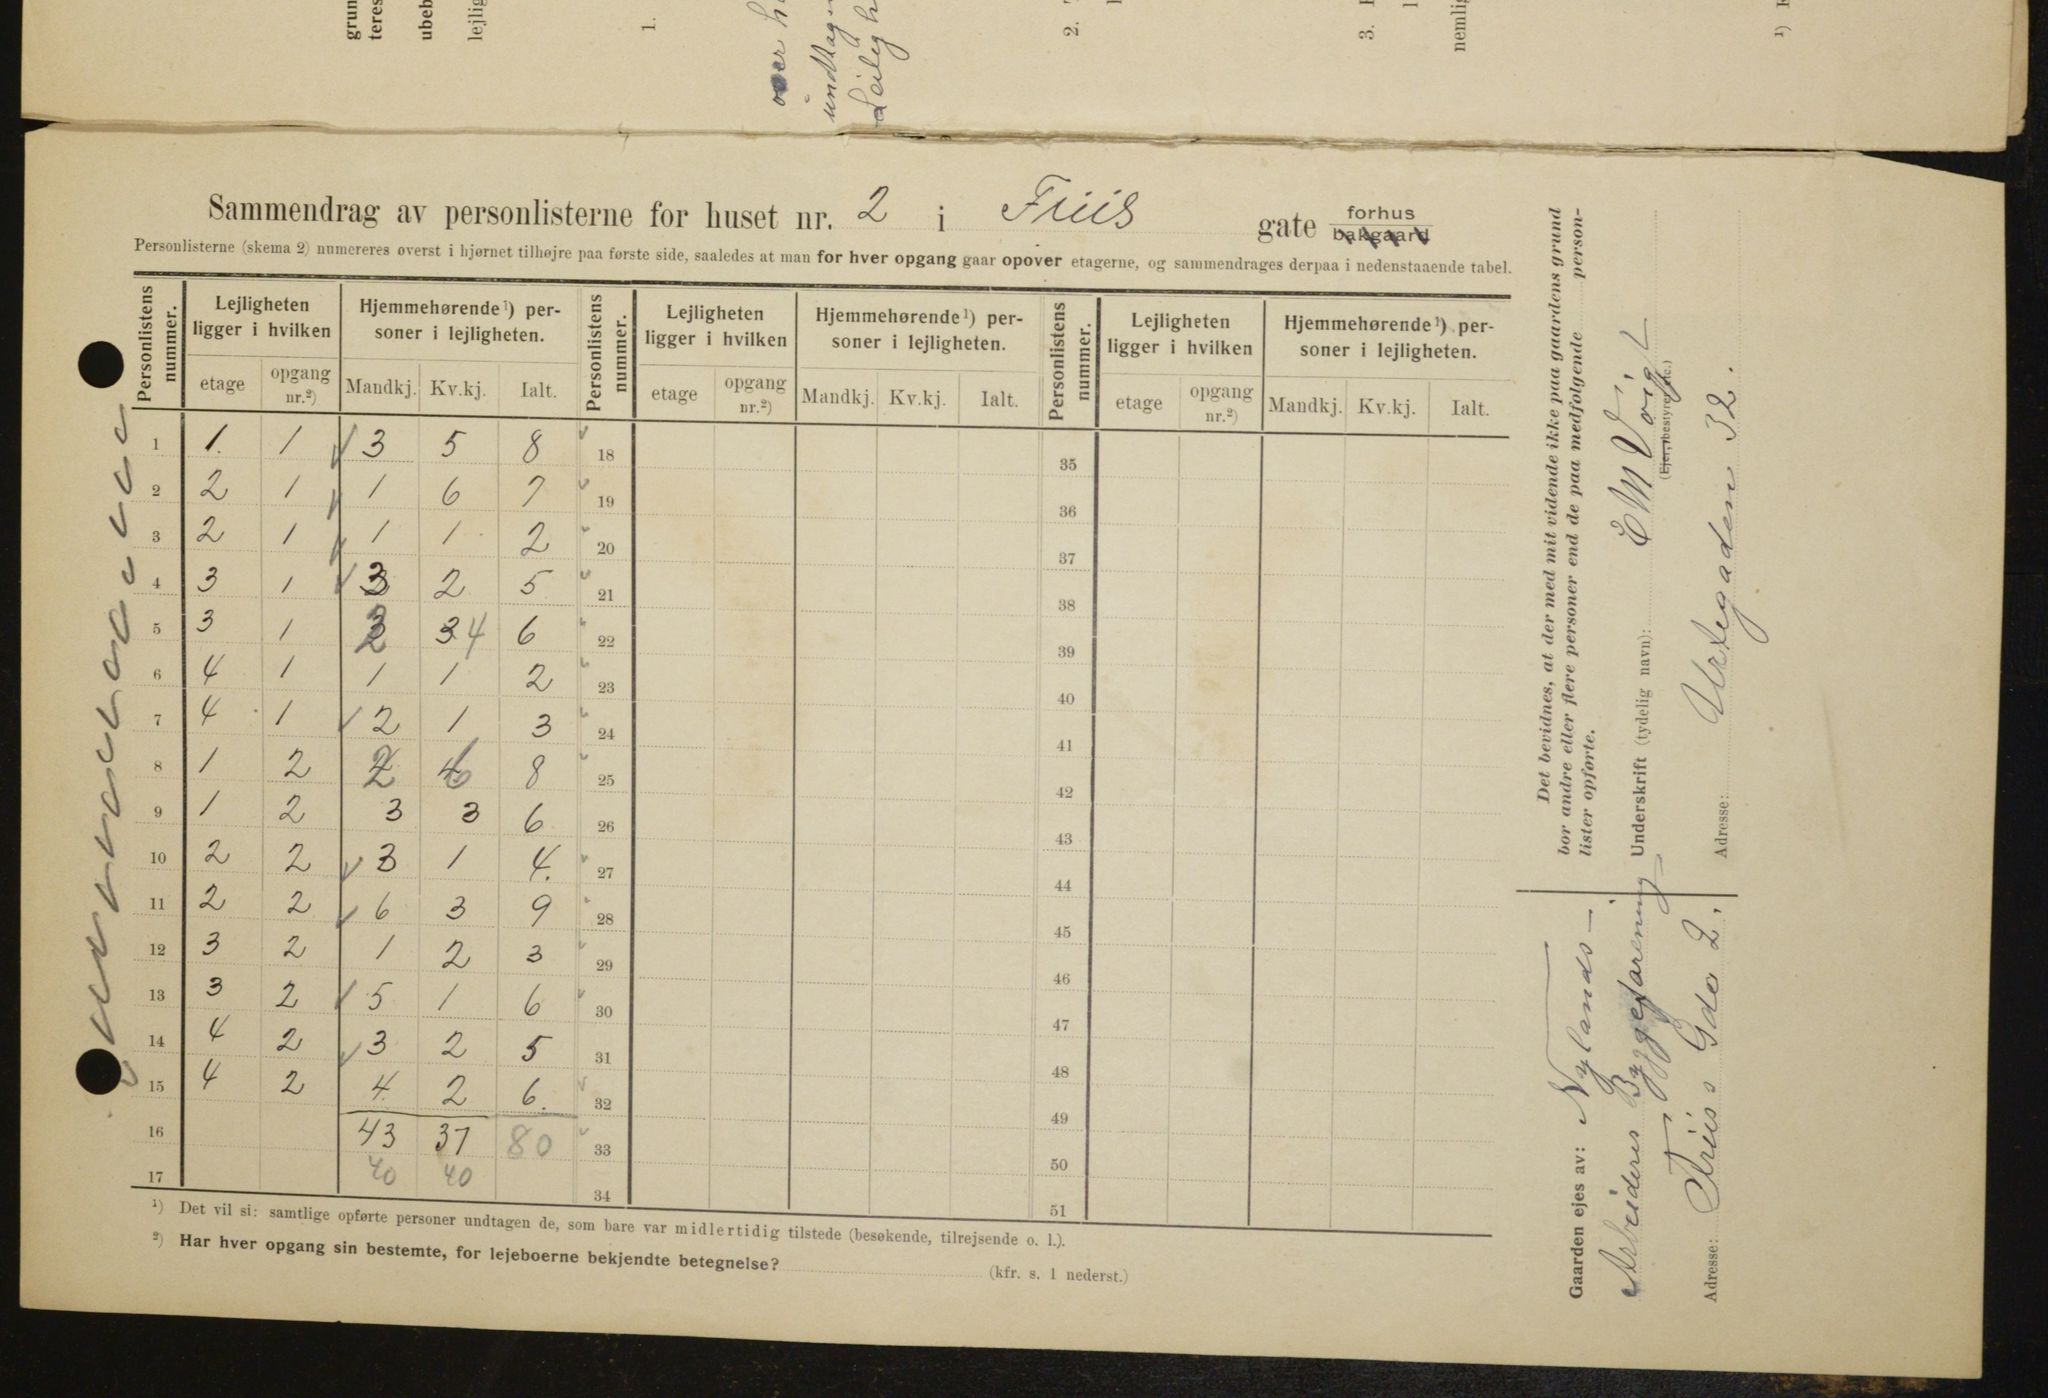 Sammendrag av personlisterne for huset nr. 2 i Friis gate forhus bakgaard
Personlisterne (skema 2) numereres øverst i hjørnet tilhøjre paa første side, saaledes at man for hver opgang gaar opover etagerne, og sammendrages derpaa i nedenstaaende tabel.
Personlistens nummer. Lejligheten ligger i hvilken Hjemmehørende¹) personer i lejligheten. Personlistens nummer. Lejligheten ligger i hvilken Hjemmehørende¹) personer i lejligheten. Personlistens nummer. Lejligheten ligger i hvilken Hjemmehørende¹) personer i lejligheten.
etage opgang nr.²) Mandkj. Kv.kj. Ialt. etage opgang nr.²) Mandkj. Kv.kj. Ialt. etage opgang nr.²) Mandkj. Kv.kj. Ialt.
1 1. 1 3 5 8 18 35
2 2 1 1 6 7 19 36
3 2 1 1 1 2 20 37
4 3 1 3 2 5 21 38
5 3 1 2 3 4 6 22 39
6 4 1 1 1 2 23 40
7 4 1 2 1 3 24 41
8 1 2 2 6 8 25 42
9 1 2 3 3 6 26 43
10 2 2 3 1 4. 27 44
11 2 2 6 3 9 28 45
12 3 2 1 2 3 29 46
13 3 2 5 1 6 30 47
14 4 2 3 2 5 31 48
15 4 2 4 2 6. 32 49
16 43 37 80 33 50
17 40 40 34 51
¹) Det vil si: samtlige opførte personer undtagen de, som bare var midlertidig tilstede (besøkende, tilrejsende o. l.).
²) Har hver opgang sin bestemte, for lejeboerne bekjendte betegnelse? (kfr. s. 1 nederst.)
Det bevidnes, at der med mit vidende ikke paa gaardens grund
bor andre eller flere personer end de paa medfølgende person-
lister opførte.
Underskrift (tydelig navn): E M Voigt
(Ejer, bestyrer etc.)
Adresse: Urtegaden 32.
Gaarden ejes av: Nylands
Arbeideres Byggeforening
Adresse: Friis Gde 2.
grun
teres
ubeb
lejlig
1.
over
undtagen
Leilig
2.
3.
nemlig
¹)